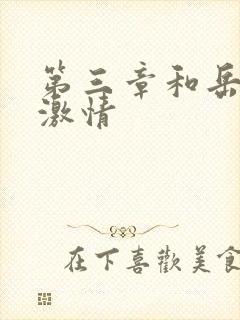 第三章和岳
激情
在下喜歡美食